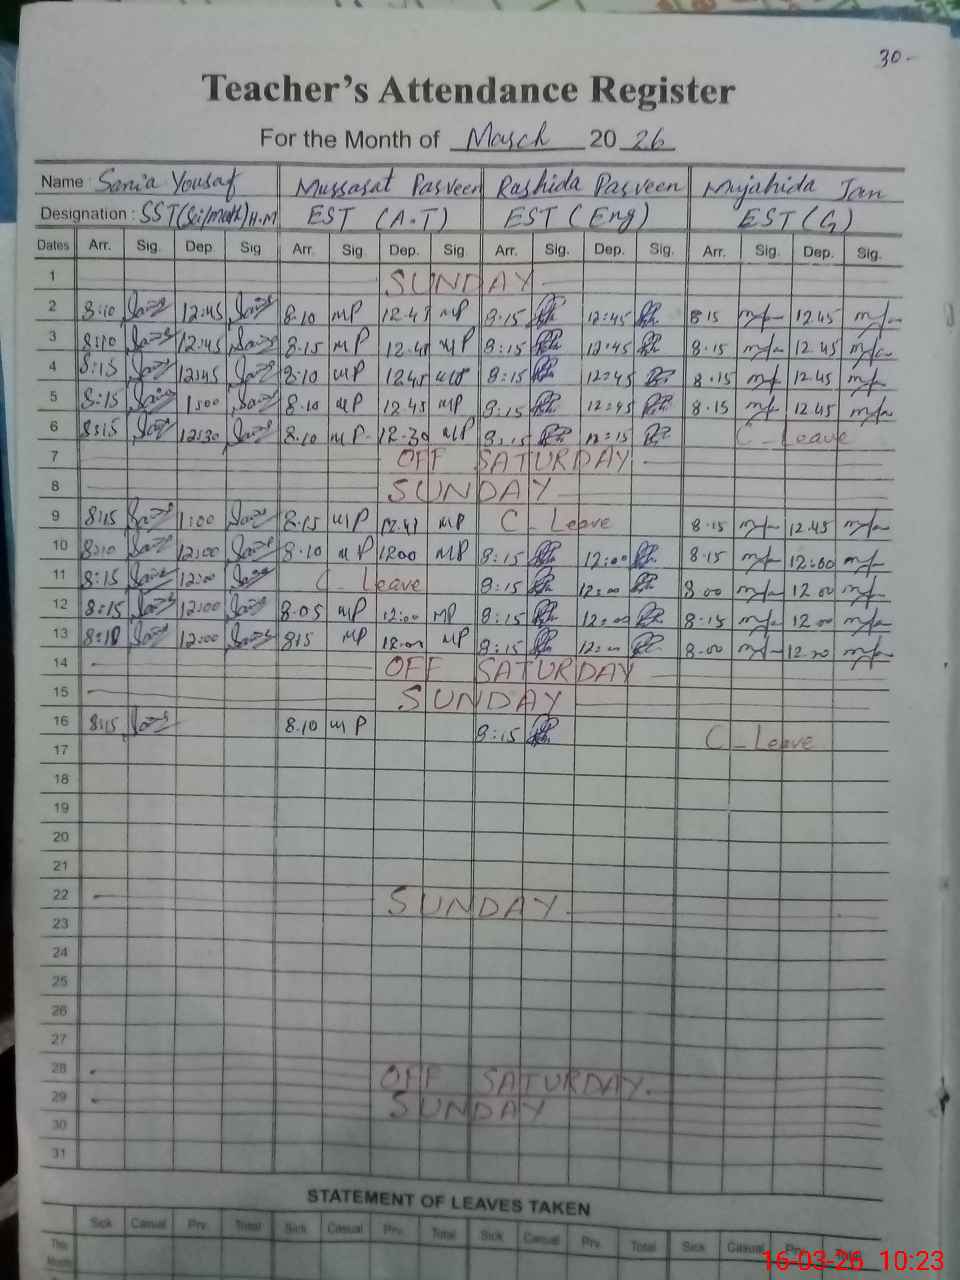 30-
Teacher's Attendance Register
For the Month of March 2026
Name : Sania Yousaf Mussasat Parveen Rashida Parveen Mujahida Jan
Designation : SST(Sci/math)H.M EST (A.T) EST (Eng) EST (G)
Dates Arr. Sig. Dep. Sig Arr. Sig Dep. Sig. Arr. Sig. Dep. Sig. Arr. Sig. Dep. Sig.
1 SUNDAY
2 8:10 12:45 8.10 MP 12.45 MP 8:15 12:45 8.15 12.45
3 8:10 12:45 8.15 MP 12.45 MP 8:15 12:45 8.15 12.45
4 8:15 12:45 8:10 MP 12.45 MP 8:15 12:45 8.15 12.45
5 8:15 1:00 8.10 MP 12.45 MP 8:15 12:45 8.15 12.45
6 8:15 12:30 8.10 MP 12.30 MP 8:15 12:15 C-Leave
7 OFF SATURDAY
8 SUNDAY
9 8:15 1:00 8.15 MP 12.45 MP C-Leave 8.15 12.45
10 8:10 12:00 8.10 MP 1200 MP 8:15 12:00 8.15 12.00
11 8:15 12:00 C-Leave 8:15 12:00 8.00 12.00
12 8:15 12:00 8.05 MP 12:00 MP 8:15 12:00 8.15 12.00
13 8:10 12:00 8:15 MP 12.00 MP 8:15 12:00 8.00
14 OFF SATURDAY
15 SUNDAY
16 8:15 8.10 MP 8:15 C-Leave
17
18
19
20
21
22 SUNDAY
23
24
25
26
27
28 OFF SATURDAY.
29 SUNDAY
30
31
STATEMENT OF LEAVES TAKEN
Sick Casual Prv. Total Sick Casual Prv. Total Sick Casual Prv. Total Sick Casual Prv. Total
This
Month
16-03-26 10:23